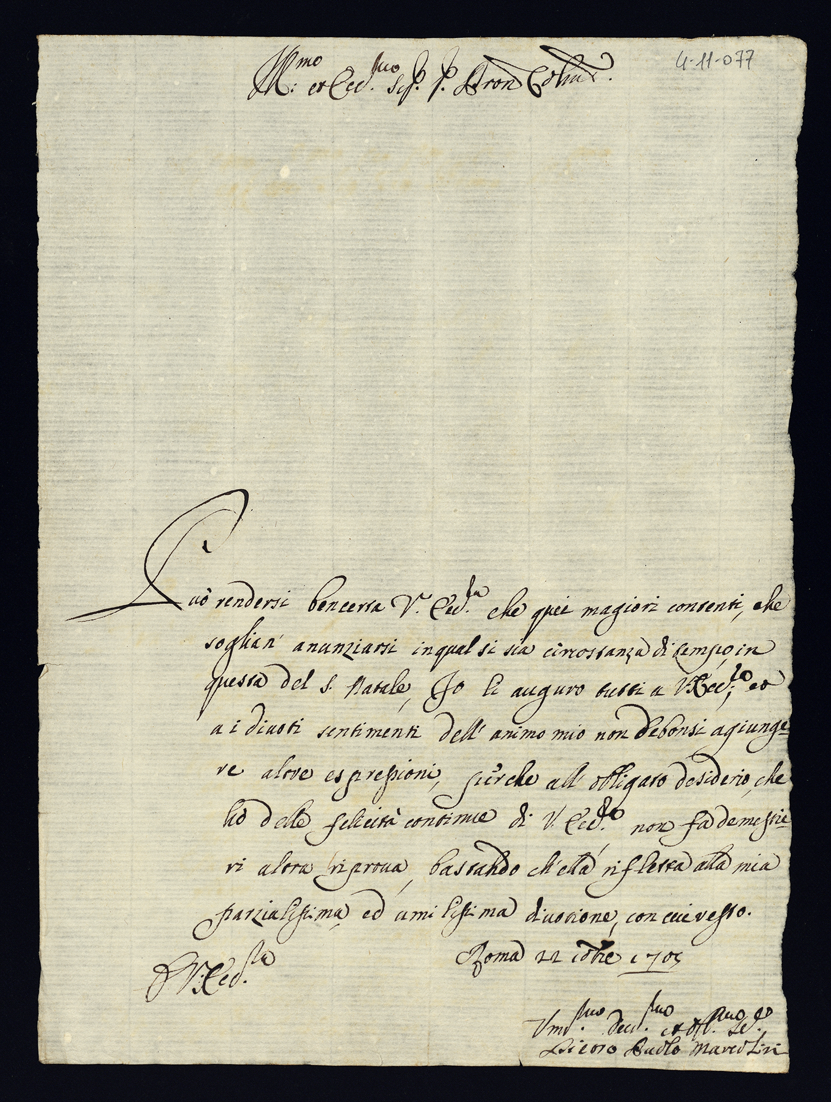 Ill.mo et Ecc.mo Sig.r P.ron Col.mo
4-11-077
Può rendersi ben certa V. Ecc.za che quei magiori contenti, che
soglian' anunziarsi in qual si sia circostanza di tempo, in
questa del S. Natale, Io li auguro tutti a V. Ecc.za, et
a i divoti sentimenti dell' animo mio non debonsi agiunge
re altre espressioni, perche all' obligato desiderio, che
hò delle felicità continue di V. Ecc.za non fà de mestie
ri altra riprova, bastando ch'ella rifletta alla mia
parzialissima, ed umilissima divotione, con cui resto.
Roma 22 Xbre 1705
D V. Ecc.za
Um.mo Dev.mo et Obl.mo Se.re
Paolo Marcolini